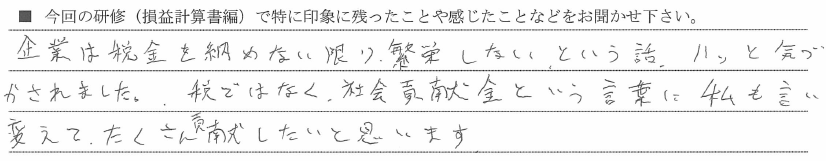 ■ 今回の研修（損益計算書編）で特に印象に残ったことや感じたことなどをお聞かせ下さい。
企業は税金を納めない限り、繁栄しない、という話、ハッと気づ
かされました。、税ではなく、社会貢献金という言葉に私も言い
変えて、たくさん貢献したいと思います